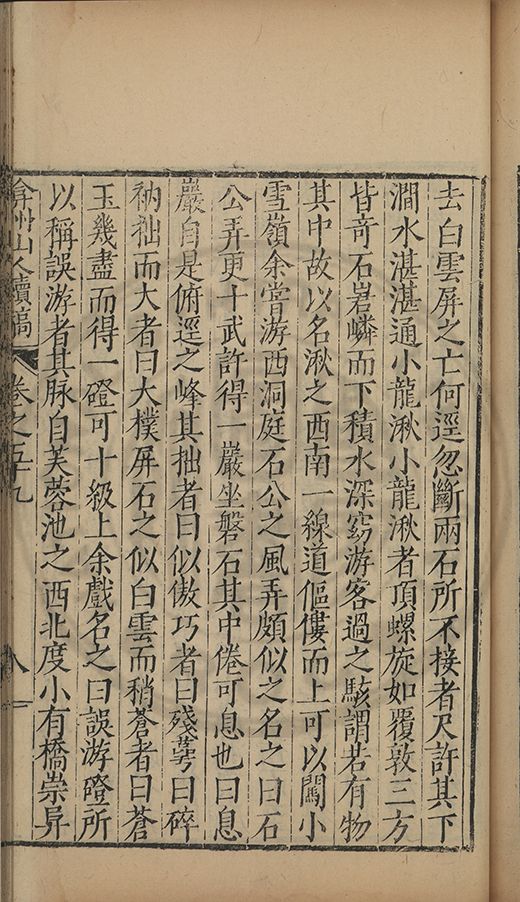 去白雲屏之亡何逕忽斷兩石所不接者尺許其下
澗水湛湛通小龍湫小龍湫者頂螺旋如覆敦三方
皆奇石嵓嶙而下積水深窈游客過之駭謂若有物
其中故以名湫之西南一線道傴僂而上可以闖小
雪嶺余嘗游西洞庭石公之風弄頗似之名之曰石
公弄更十武許得一巖坐磐石其中倦可息也曰息
巖自是俯逕之峰其拙者曰似傲巧者曰殘萼曰碎
衲拙而大者曰大樸屏石之似白雲而稍蒼者曰蒼
玉幾盡而得一磴可十級上余戲名之曰誤游磴所
以稱誤游者其脉自芙蓉池之西北度小有橋崇昇
弇州山人續稿
卷之五十九
八